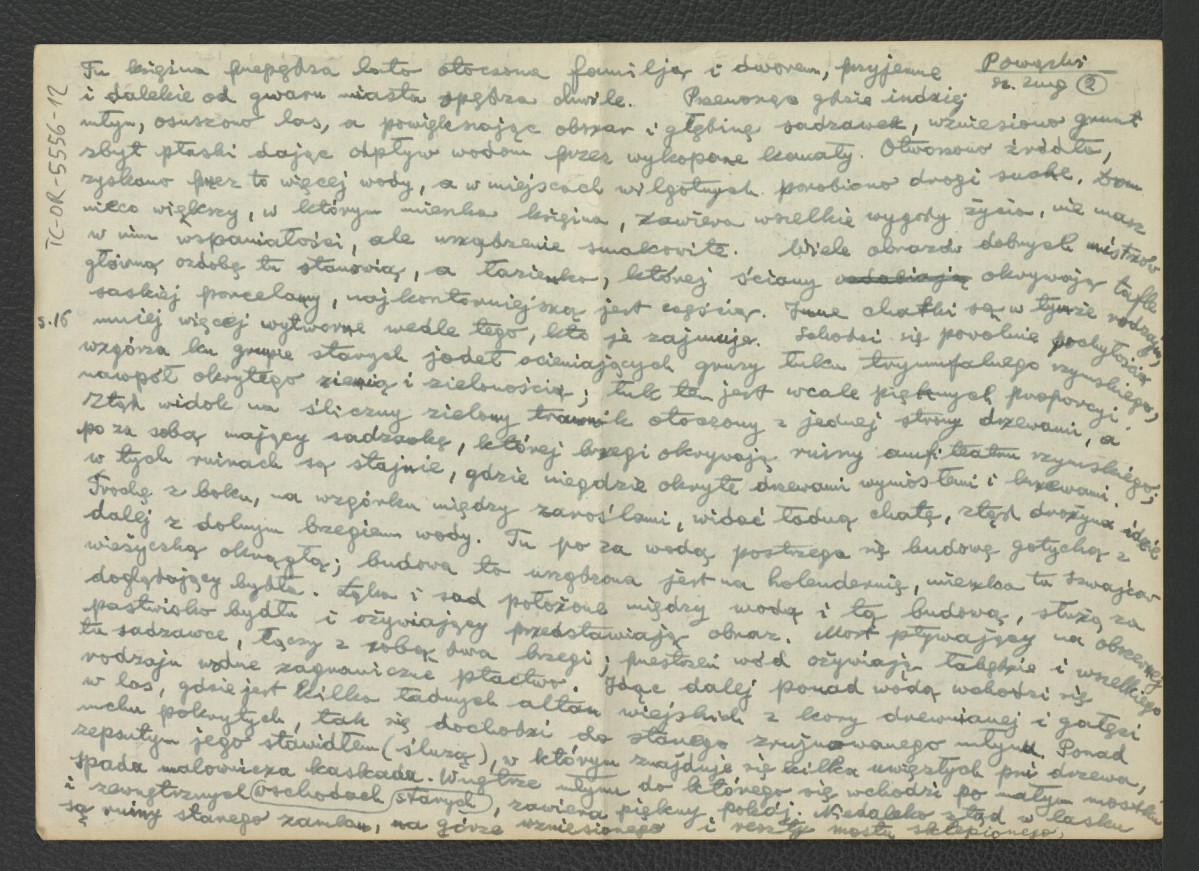 Powązki
str. 2
TC-OR-5556-12
Tu księżna przepędza lato otoczona familją i dworem, przyjemne
i dalekie od gwaru miasta spędza chwile. Przeniesiono gdzie indziej
młyn, osuszono las, a powiększając obszar i głębinę sadzawek, wzniesiono grunt
zbyt płaski dając odpływ wodom przez wykopane kanały. Otworzono źródła,
zyskano przez to więcej wody, a w miejscach wilgotnych porobiono drogi suche. Dom
nieco większy, w którym mieszka księżna, zawiera wszelkie wygody życia, nie masz
w nim wspaniałości, ale urządzenie smakowite. Wiele obrazów dobrych mistrzów
główną ozdobę tu stanowią, a łazienka, której ściany ozdabiają okrywają tafle
saskiej porcelany, najkosztowniejszą jest częścią. Inne chatki są w tymże rodzaju,
s.16 mniej więcej wytworne wedle tego, kto je zajmuje. Schodzi się powolnie pochyłością
wzgórza ku grupie starych jodeł ocieniających gruzy łuku tryumfalnego rzymskiego,
nawpół okrytego ziemią i zielonością; łuk ten jest wcale pięknych proporcyi.
Ztąd widok na śliczny zielony trawnik otoczony z jednej strony drzewami, a
po za sobą mający sadzawkę, której brzegi okrywają ruiny amfiteatru rzymskiego;
w tych ruinach są stajnie, gdzie niegdzie okryte drzewami wyniosłemi i krzewami.
Trochę z boku, na wzgórku między zaroślami, widać ładną chatę, ztąd drożyna idzie
dalej z dolnym brzegiem wody. Tu po za wodą postrzega się budowę gotycką z
wieżyczką okrągłą; budowa to urządzona jest na holendernię, mieszka tu szwajcar
doglądający bydła. Łąka i sad położone między wodą i tą budową, służą za
pastwisko bydłu i ożywiający przedstawiają obraz. Most pływający na obszernej
tu sadzawce, łączy z sobą dwa brzegi; przestrzeń wód ożywiają łabędzie i wszelkiego
rodzaju wodne zagraniczne ptactwo. Idąc dalej ponad wodą wchodzi się
w las, gdzie jest kilka ładnych altan wiejskich z kory drewnianej i gałęzi
mchu pokrytych, tak się dochodzi do starego zrujnowanego młyna. Ponad
zepsutym jego stawidłem (śluzą), w którym znajduje się kilka uwięzłych pni drzewa,
spada malownicza kaskada. Wnętrze młyna do którego się wchodzi po małym mostku
i zewnętrznych wschodach starych, zawiera piękny pokój. Niedaleko ztąd w lasku
są ruiny starego zamku, na górze wzniesionego i reszty mostu sklepionego,